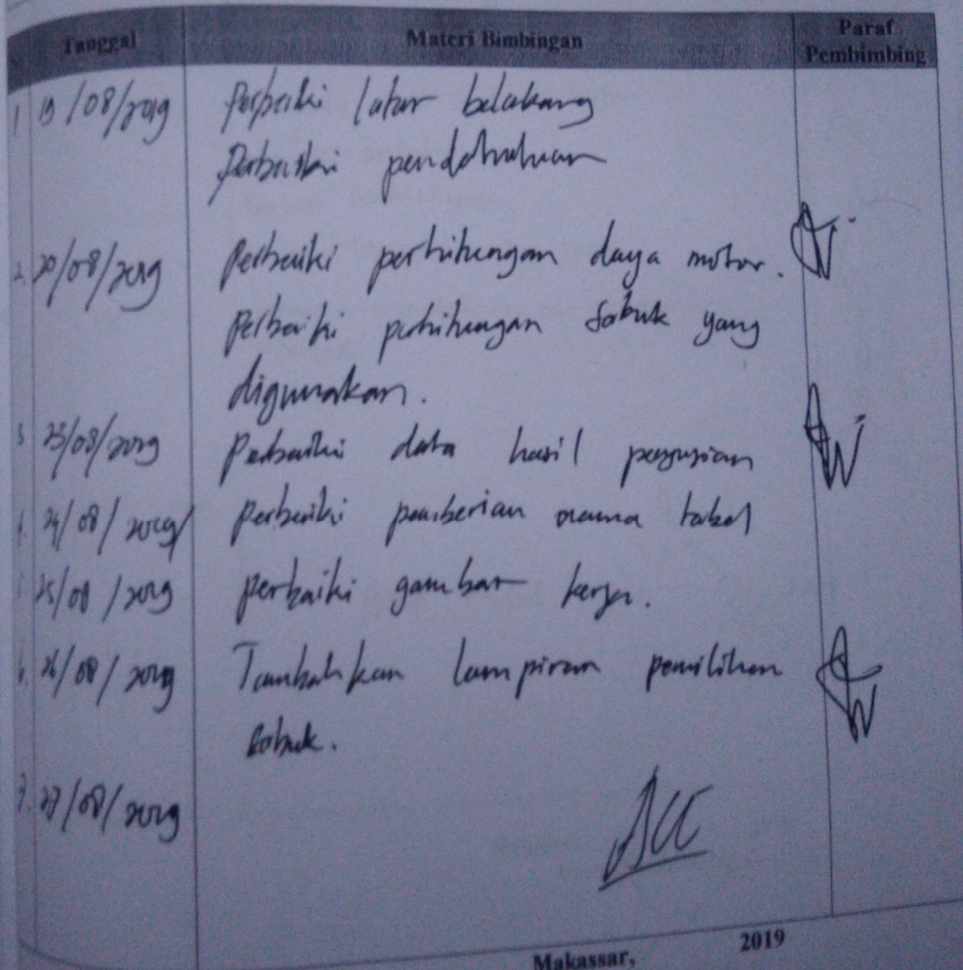 Tanggal Materi Bimbingan Paraf Pembimbing
1. 19/08/2019 Perbaiki latar belakang
Perbaiki pendahuluan
2. 20/08/2019 Perbaiki perhitungan daya motor.
Perbaiki perhitungan sabuk yang
digunakan.
3 23/08/2019 Perbaiki data hasil pengujian
4. 24/08/2019 Perbaiki pemberian nama tabel
25/08/2019 Perbaiki gambar kerja.
6. 26/08/2019 Tambahkan lampiran pemilihan
sabuk.
7. 27/08/2019 ACC
Makassar, 2019